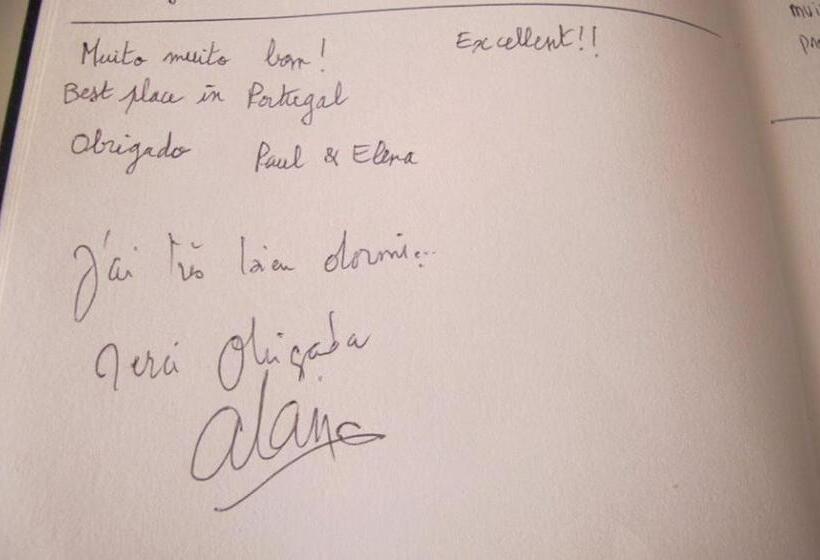 Muito muito bom! Excellent!!
Best place in Portugal
Obrigado Paul & Elena
J'ai très bien dormi...
Merci Obrigada